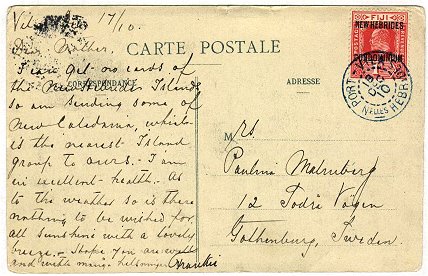 Vila 17/10.
Dear Mother,
CARTE POSTALE
CORRESPONDANCE
I can get no cards of
the New Hebrides Islands
so am sending some of
New Caledonia, which
is the nearest Island
group to ours. I am
in excellent health. As
to the weather so is there
nothing to be wished for,
all sunshine with a lovely
breeze. Hope you are well
and with många helsningar
ADRESSE
FIJI
NEW HEBRIDES
CONDOMINIUM
POSTAGE
PORT-VILA
10
Nlles HEBRIDES
M rs.
Paulina Malmberg
12 Södra Vägen
Gothenburg, Sweden.